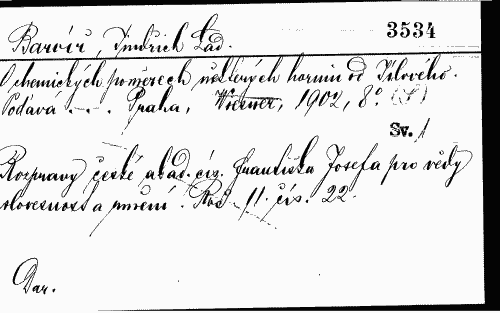 Barvíř, Jindřich Lad. 3534
O chemických poměrech některých hornin od Jílového.
Podává . . . Praha, Wiesner, 1902, 8°. (S)
Sv. 1
Rozpravy české akad. cís. Františka Josefa pro vědy
slovesnost a umění. Roč. 11. čís. 22.
Dar.